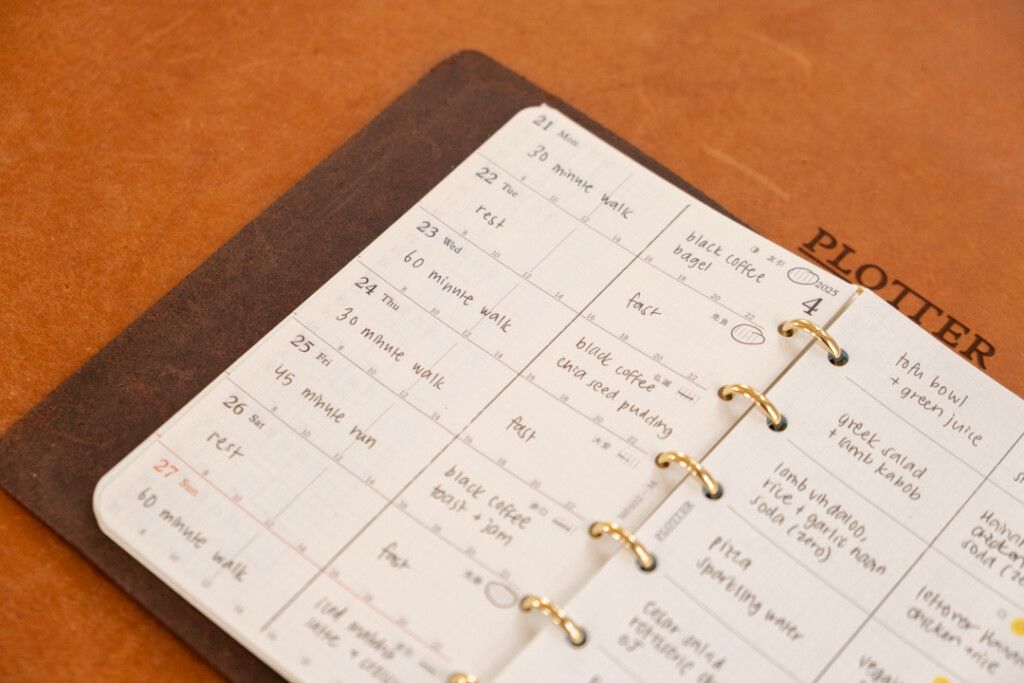 PLOTTER
2025
4
21 Mon
30 minute walk
black coffee
bagel
22 Tue
rest
fast
23 Wed
60 minute walk
black coffee
chia seed pudding
24 Thu
30 minute walk
fast
25 Fri
45 minute run
black coffee
toast + jam
26 Sat
rest
fast
27 Sun
60 minute walk
iced
latte +
PLOTTER
tofu bowl
+ green juice
greek salad
+ lamb kabob
lamb vindaloo,
rice + garlic naan
soda (zero)
pizza
sparkling water
caesar salad
rotisserie
OJ
soda (ze
leftover
chicken rice